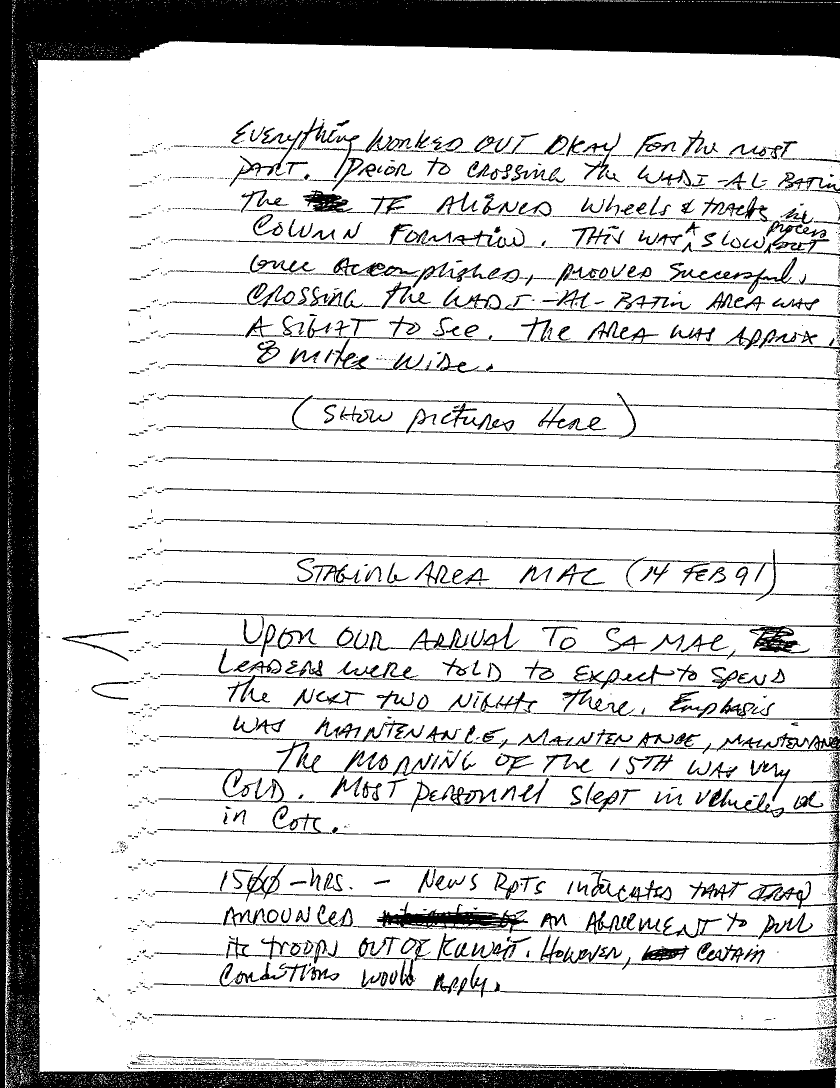 Everything worked out okay for the most
part. Prior to crossing the WADI-AL-BATIN
the TF aligned wheels & tracks in
column formation. This was a slow process but
once accomplished, prooved successful.
Crossing the WADI-AL-BATIN area was
a sight to see. The area was approx.
8 miles wide.
(Show pictures Here)
Staging Area MAC (14 FEB 91)
Upon our arrival to SA MAC,
leaders were told to expect to spend
the next two nights there. Emphasis
was MAINTENANCE, MAINTENANCE, MAINTENANCE
The morning of the 15TH was very
cold. Most personnel slept in vehicles or
in cots.
1500-hrs. - News Rpts indicates that IRAQ
announced an agreement to pull
its troops out of Kuwait. However, certain
conditions would apply.